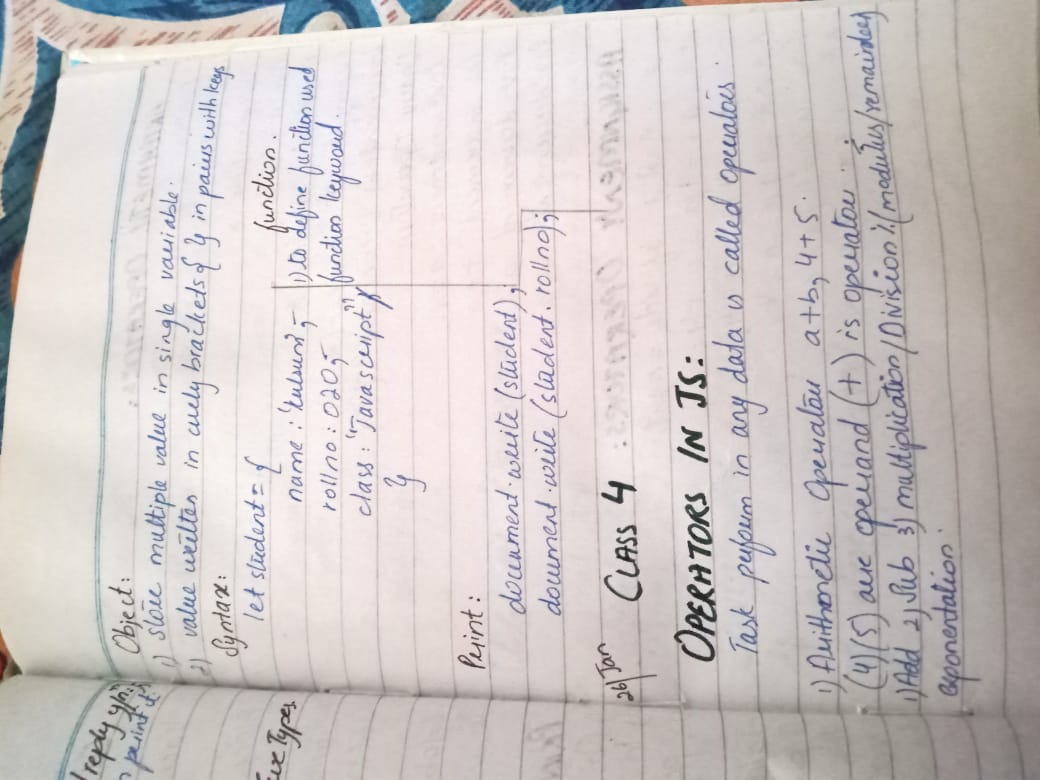 Object:
1) store multiple value in single variable.
2) value written in curly brackets { } in pairs with keys
Syntax:
let student = {
name : "kulsum",
rollno : 020,
class : "Javascript"
}
function.
1) to define function used
function keyword.
Print:
document.write (student);
document.write (student. rollno);
26/Jan CLASS 4
OPERATORS IN JS:
Task perform in any data is called operators.
1) Arithmetic Operator a+b, 4+5.
(4)(5) are operand (+) is operator.
1) Add 2) Sub 3) multiplication / Division % (modulus/remainder)
exponentation.
reply y/n
print it
Types